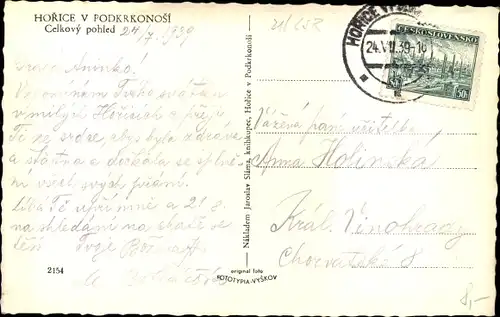 HOŘICE V PODKRKONOŠÍ
Celkový pohled 24/7. 1939
21/ČSR
HOŘICE V
24.VII.39-18
ČESKOSLOVENSKO
50h
Drahá Aninko!
Vzpomínám Tvého svátku
v milých Hořicích a přeji
Ti ze srdce, abys byla zdráva
a šťastna a dočkala se splně
ní všech svých přání.
Líbá Tě upřímně a 21/8.
na shledání na
Tvoje
Nákladem Jaroslav Sláma, knihkupec, Hořice v Podkrkonoší
Vážená paní učitelka
Anna Holinská
Král. Vinohrady
Chorvatská 8
2154
original foto
FOTOTYPIA-VYŠKOV
8,-